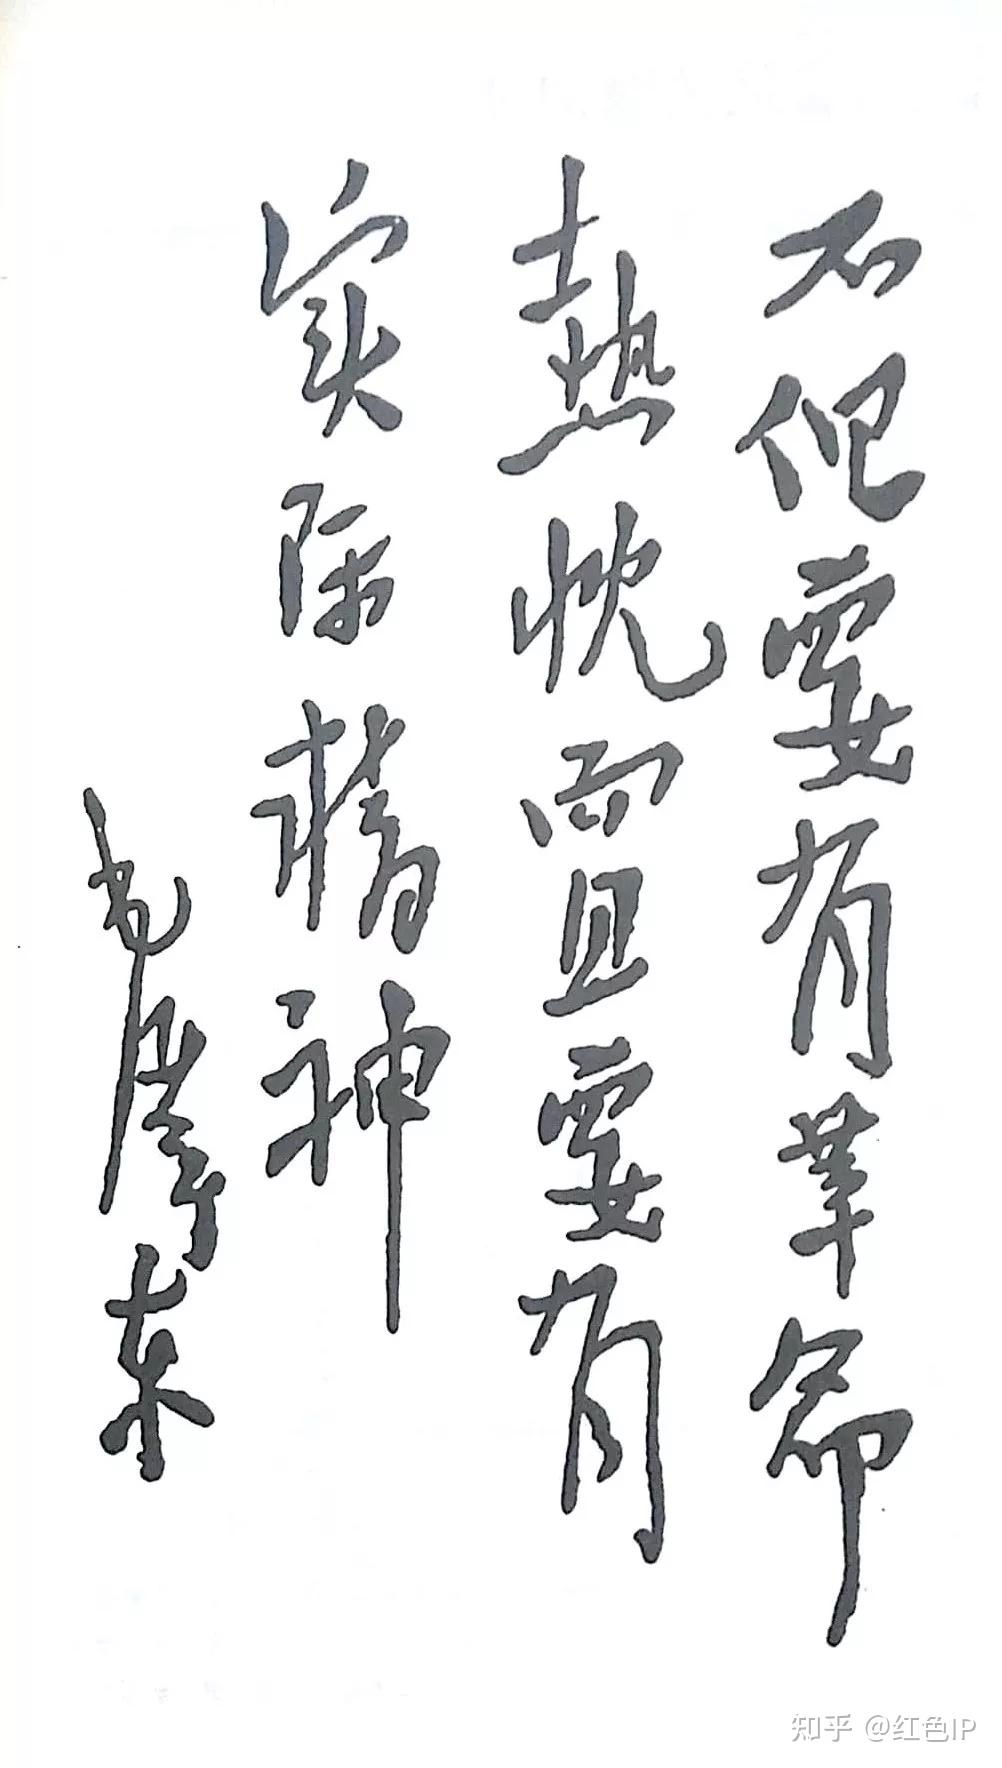 不但要有革命
热忱而且要有
实际精神
毛泽东
知乎 @红色IP